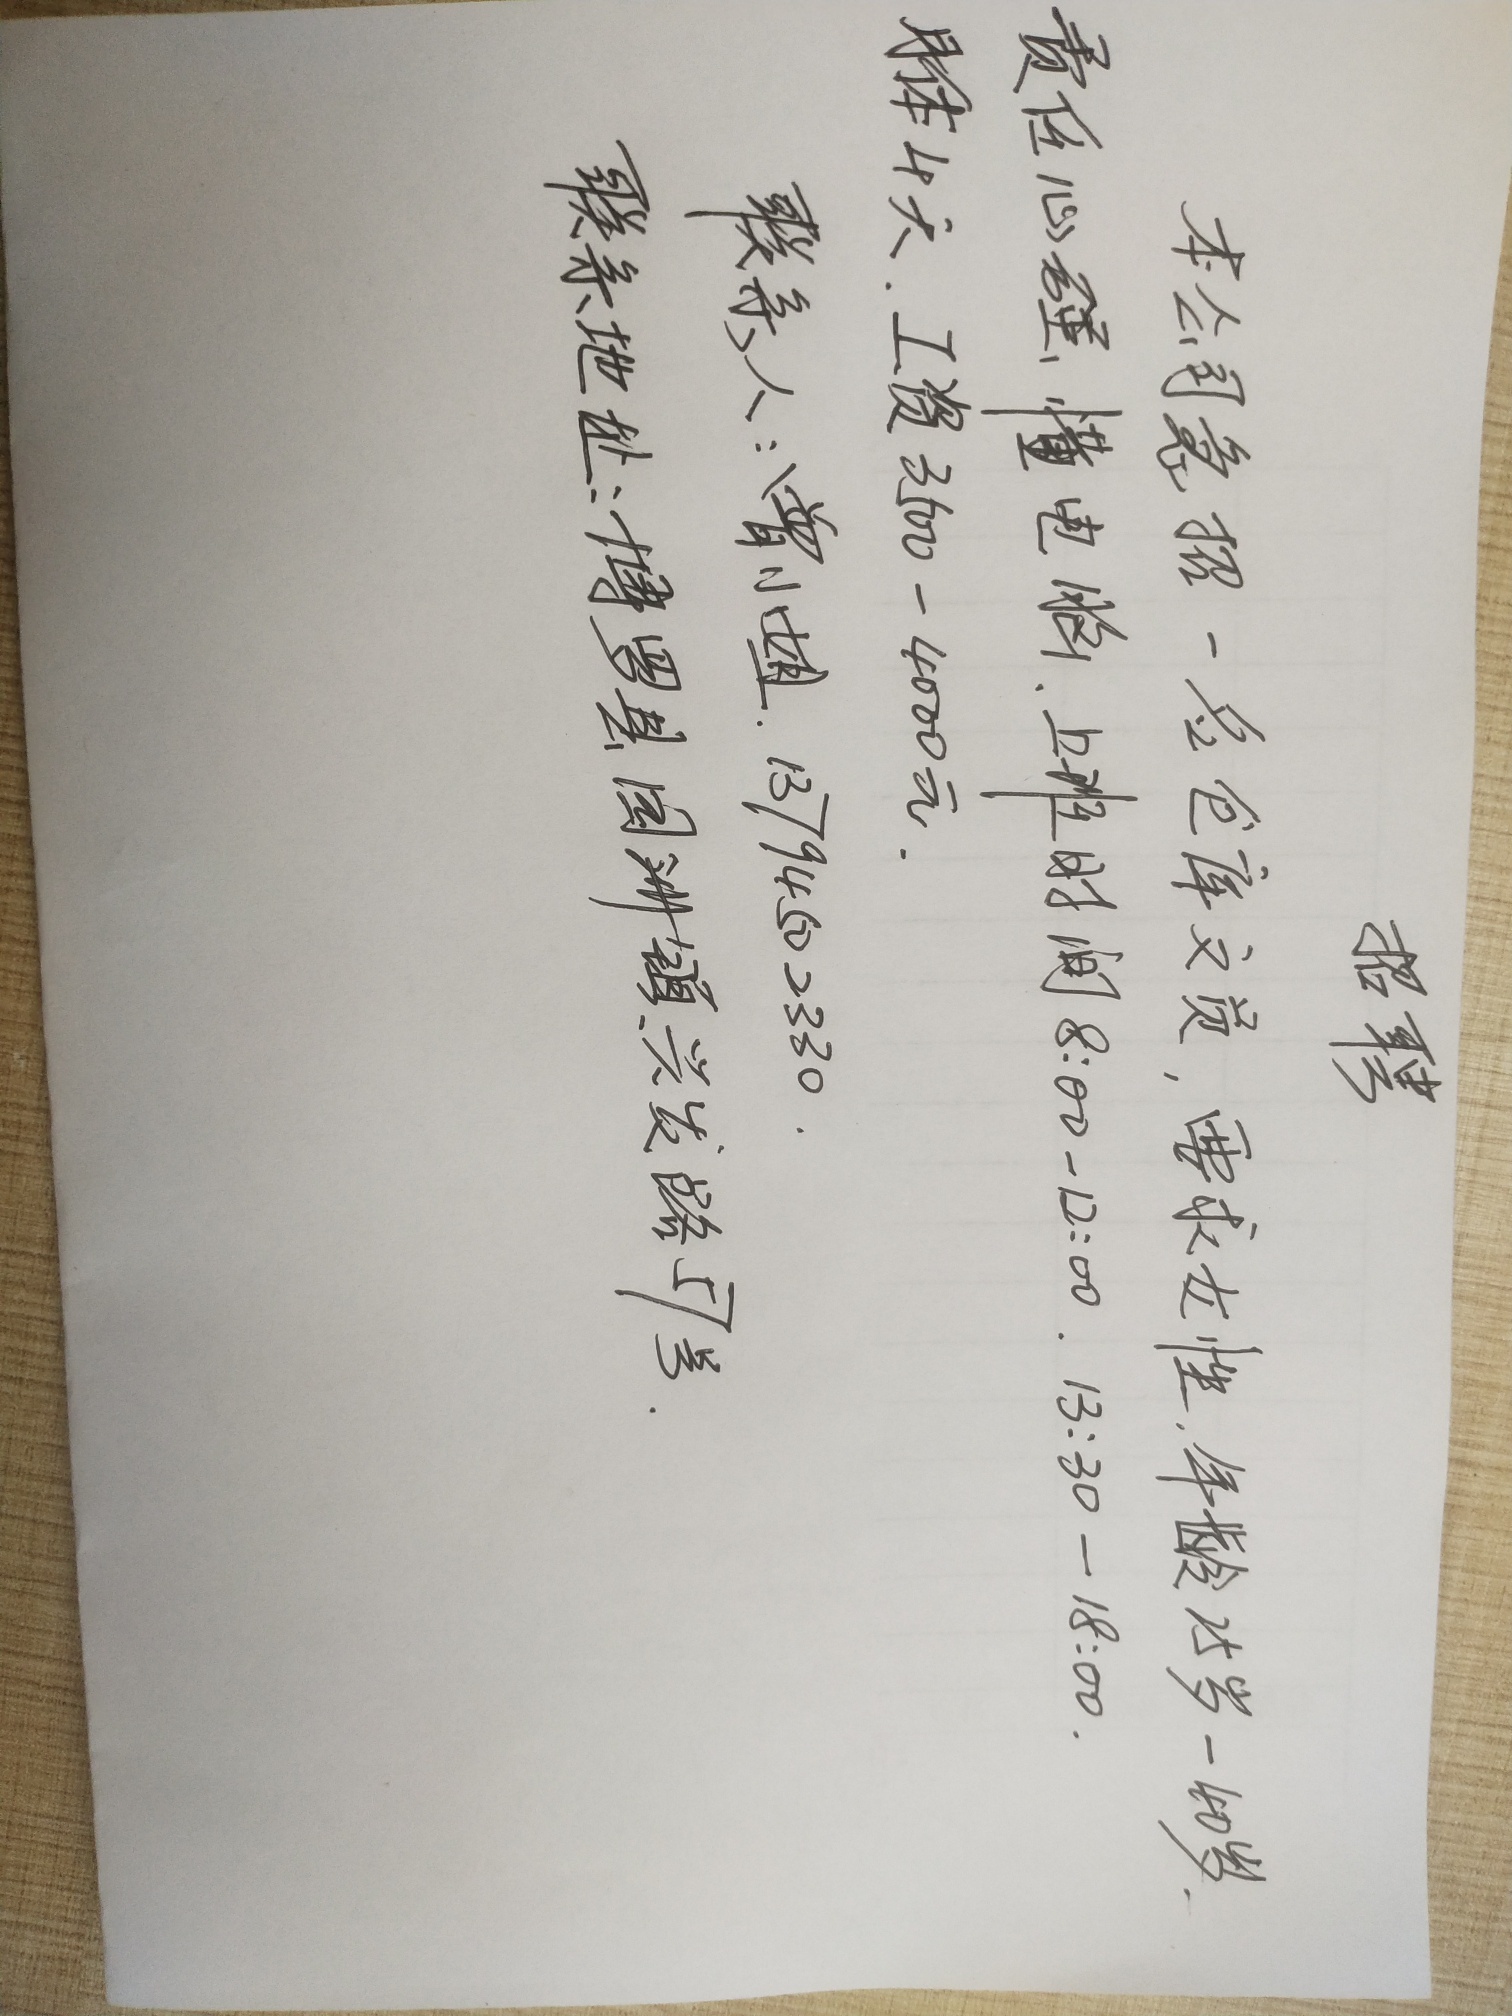 招聘
本公司急招一名仓库文员，要求女性.年龄25岁-40岁.
责任心强,懂电脑.上班时间8:00-12:00.13:30-18:00.
月休4天.工资3500-4000元.
联系人:曾小姐.13794502330.
联系地址:博罗县园洲镇兴发路57号.